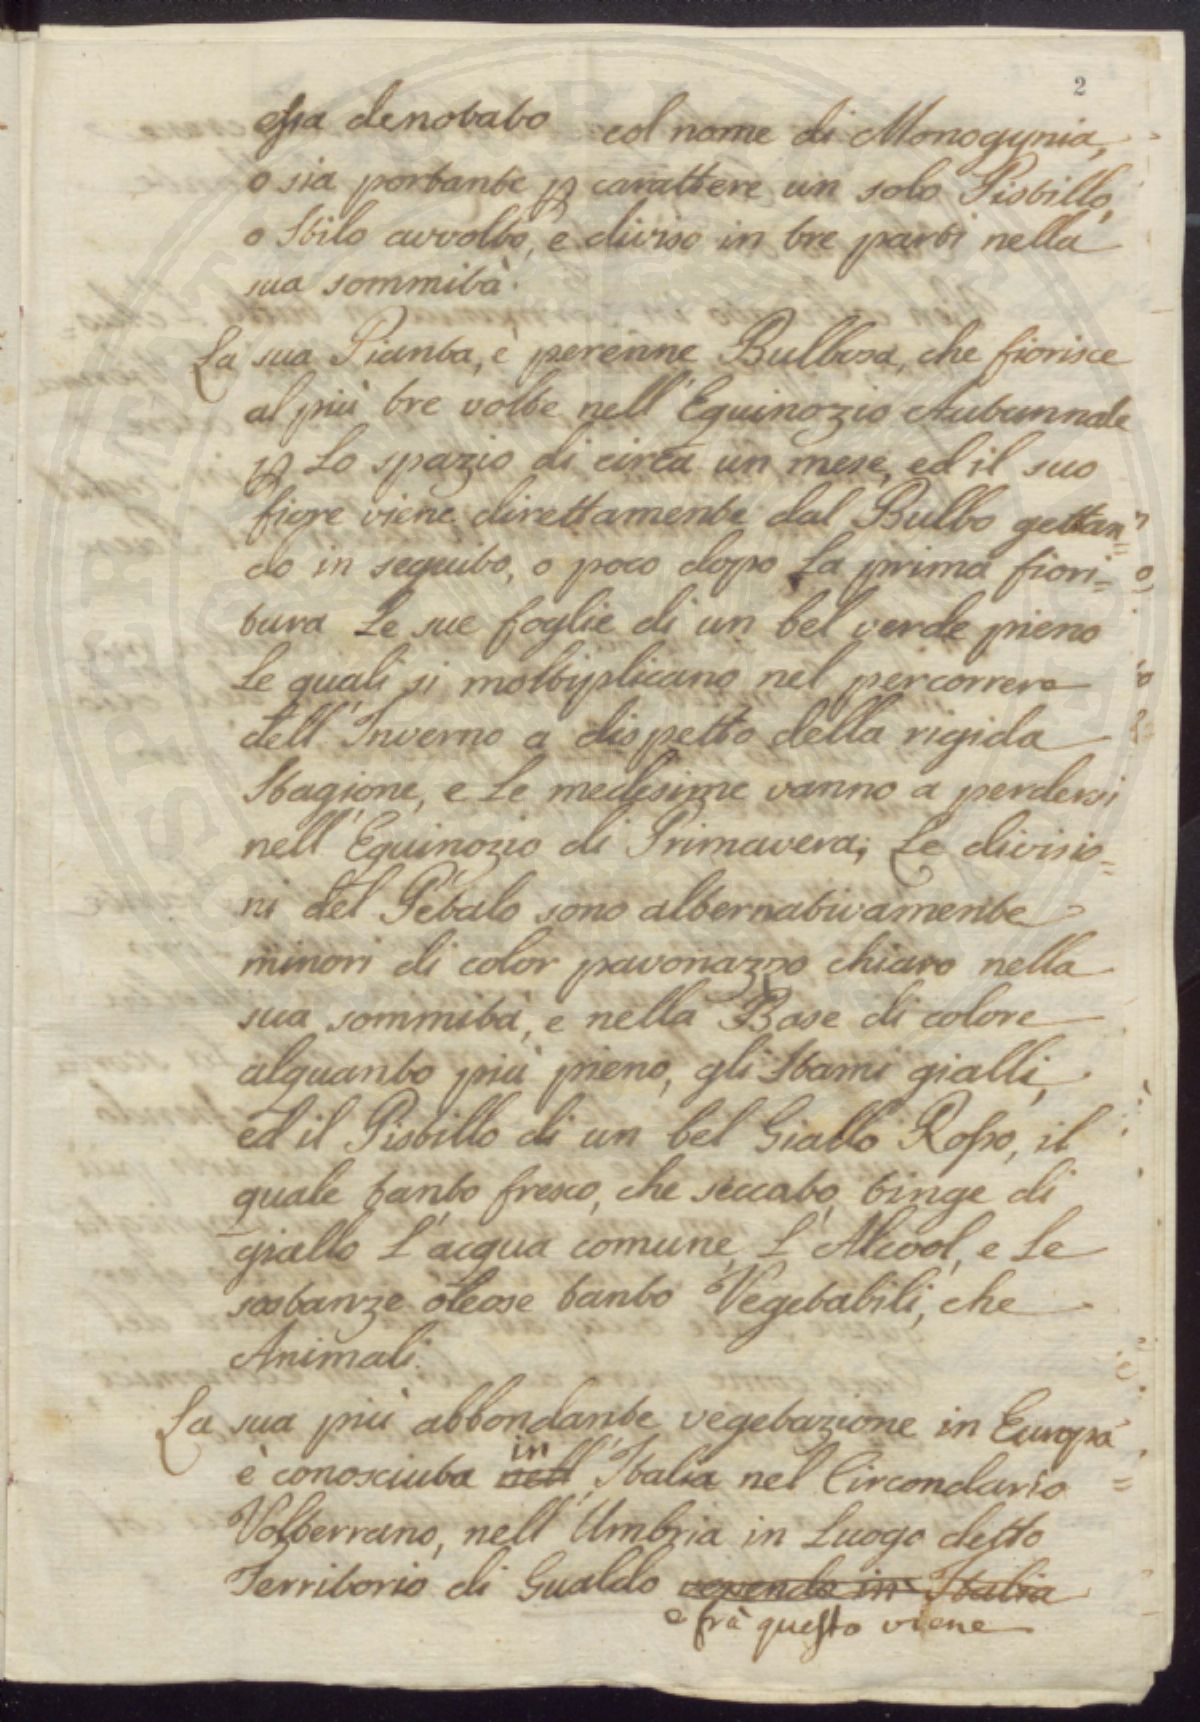 2
essa denotato col nome di Monogynia,
o sia portante p carattere un solo Pistillo,
o Stilo avvolto, e diviso in tre parti nella
sua sommità.
La sua Pianta, è perenne Bulbosa, che fiorisce
al più tre volte nell'Equinozio Autunnale
p Lo spazio di circa un mese, ed il suo
fiore viene direttamente dal Bulbo gettan=
do in seguito, o poco dopo La prima fiori=
tura Le sue foglie di un bel verde pieno
Le quali si moltiplicano nel percorrere
dell'Inverno a dispetto della rigida
Stagione, e Le medesime vanno a perdersi
nell'Equinozio di Primavera; Le divisio=
ni del Pétalo sono alternativamente
minori di color pavonazzo chiaro nella
sua sommità, e nella Base di colore
alquanto più pieno, gli Stami gialli,
ed il Pistillo di un bel Giallo Rosso, il
quale tanto fresco, che seccato, tinge di
giallo L'acqua comune, L'Alcool, e Le
sostanze oleose tanto Vegetabili, che
Animali.
La sua più abbondante vegetazione in Europa
in
è conosciuta nell'Italia nel Circondario
Volterrano, nell'Umbria in Luogo detto
Territorio di Gualdo in Italia
e frà questo viene